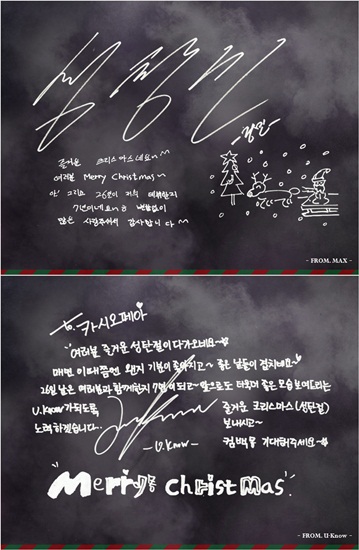 -창민-
즐거운 크리스마스네요~^^
여러분 Merry Christmas~
아! 그리고 26일이 저희 데뷔한지
7년이네요~ 변함없이
많은 사랑주셔서 감사합니다^^
- FROM. MAX -
to. 카시오페아
"여러분 즐거운 성탄절이 다가오네요~
매번 이때쯤엔 왠지 기분이 좋아지고~ 좋은 날들이 겹치네요~
26일 날은 여러분과 함께한지 7년이 되고~ 앞으로도 더욱더 좋은 모습 보여드리는
U.Know가 되도록
노력하겠습니다.
즐거운 크리스마스(성탄절)
보내시고~
컴백을 기대해주세요~
-U.Know-
"Merry christmas"
- FROM. U-Know -